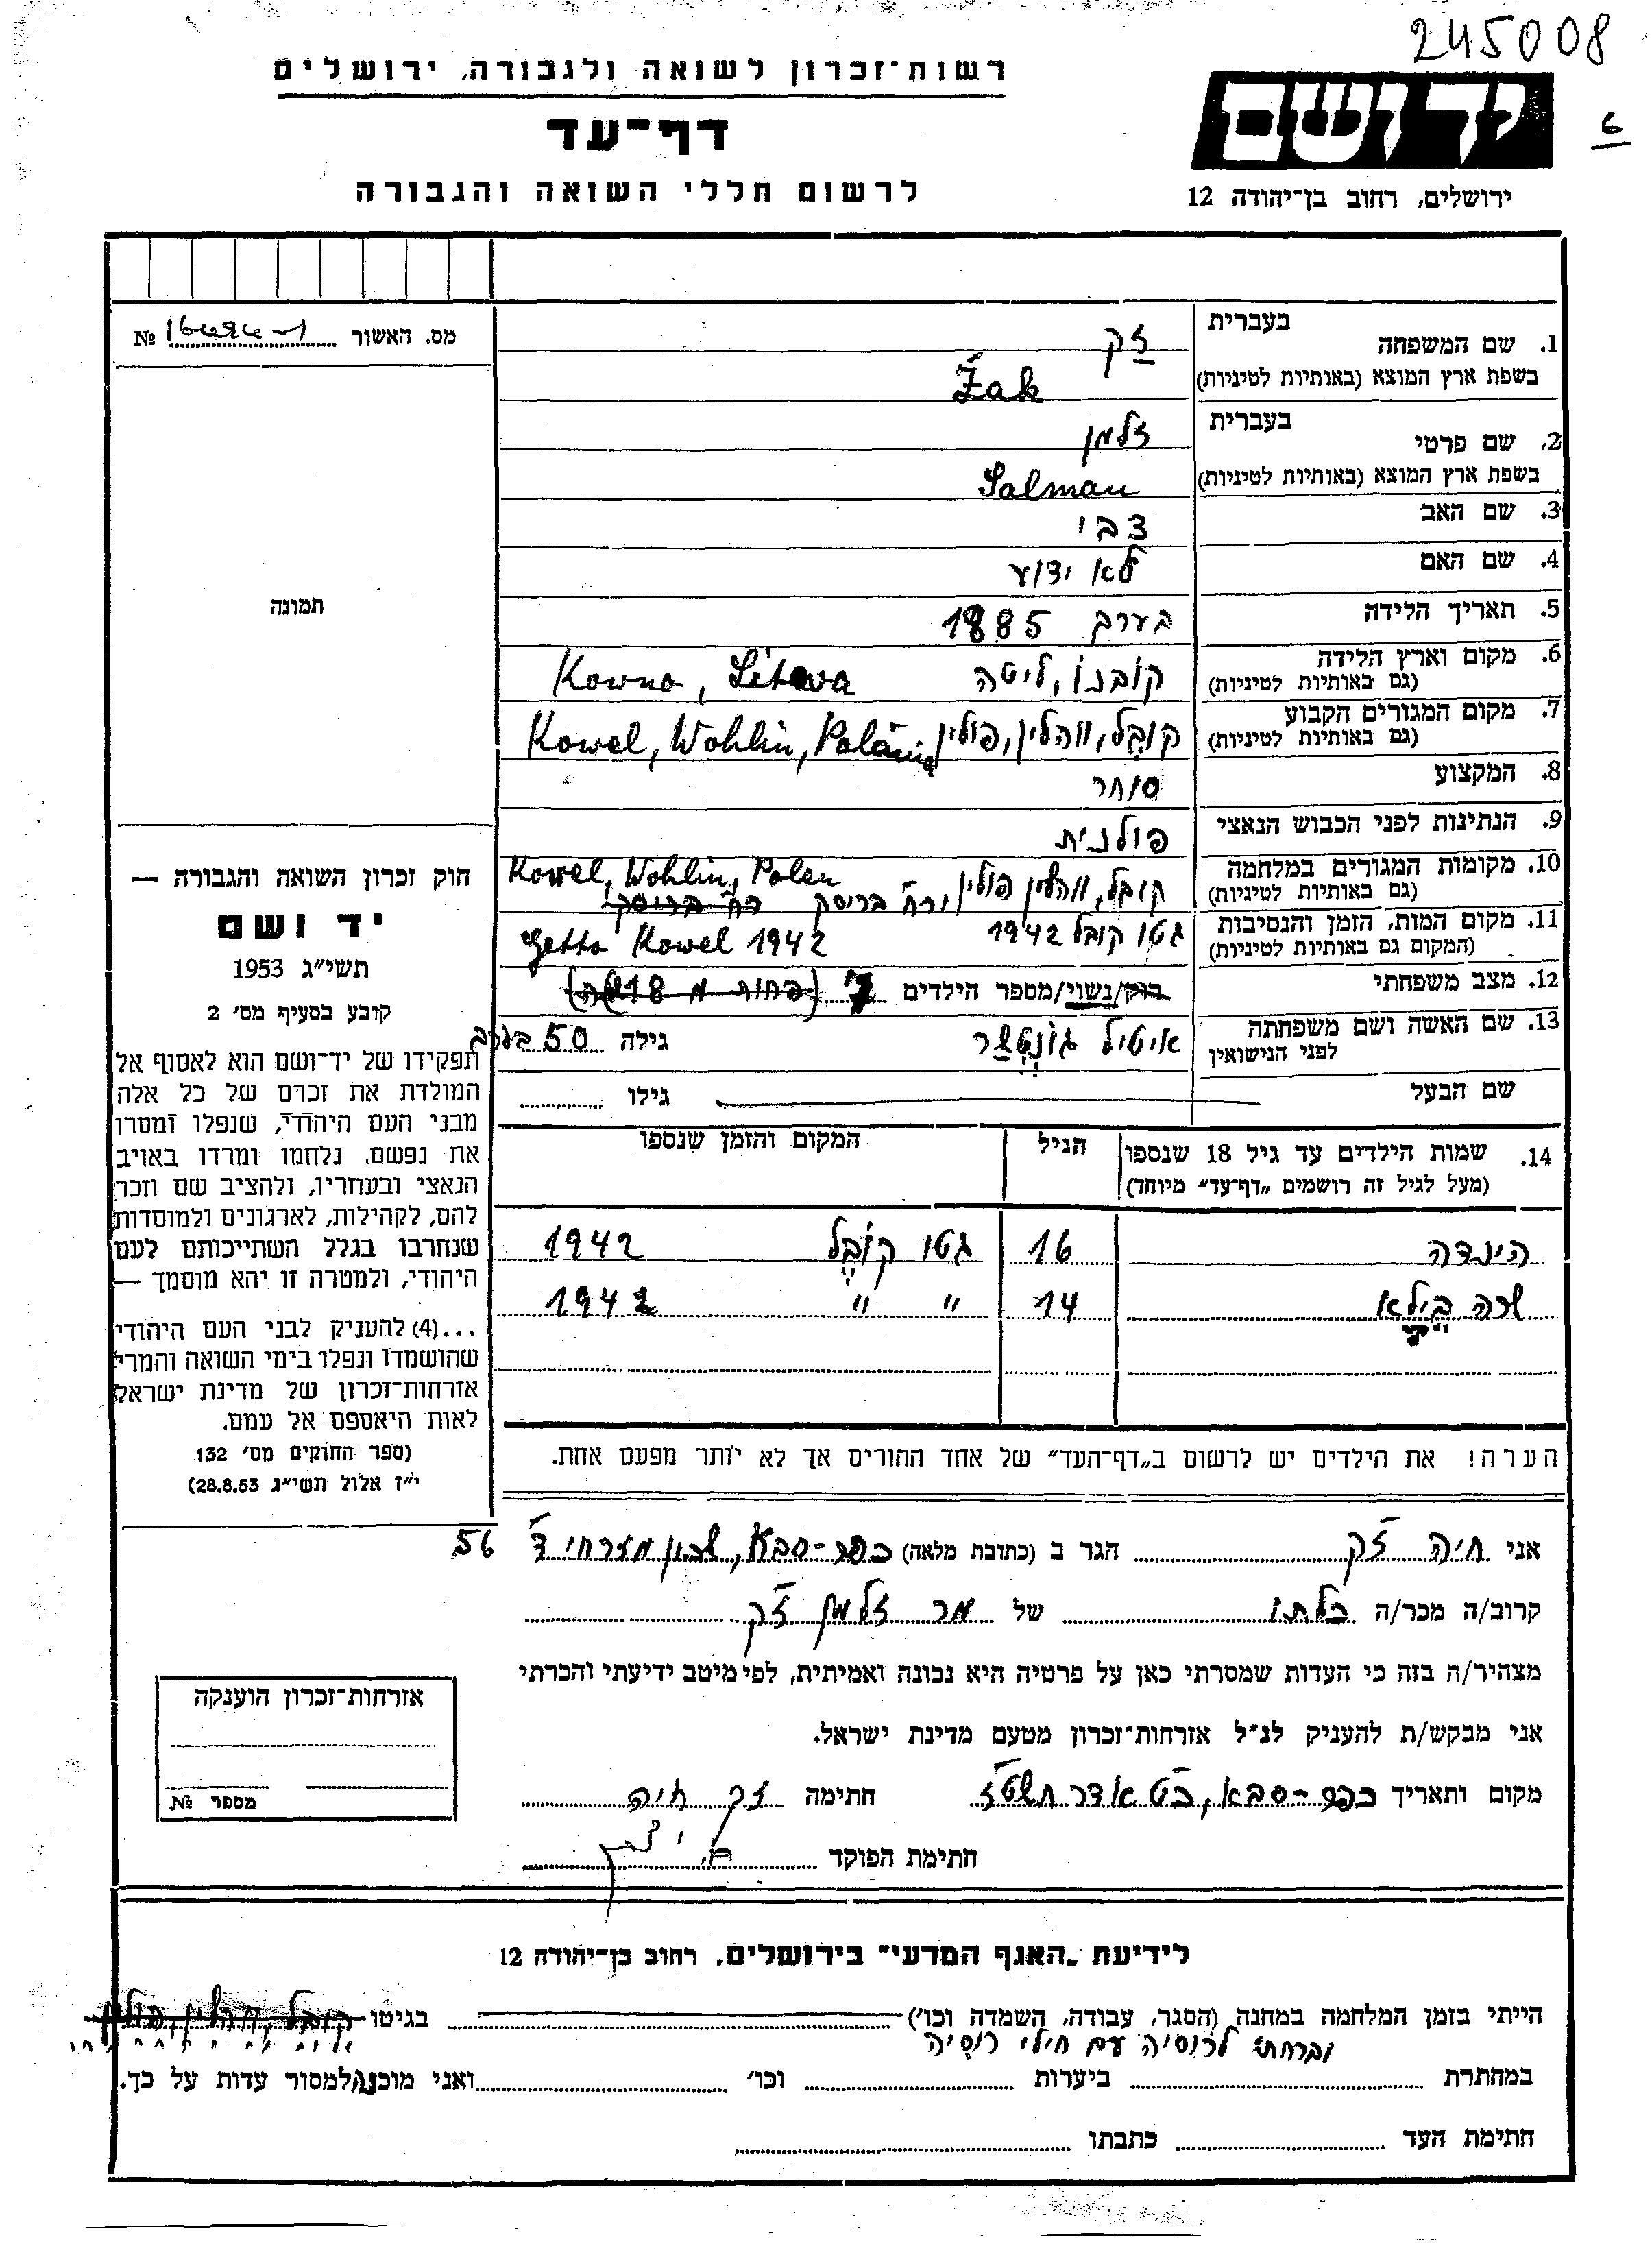 245008
6
יד ושם
ירושלים, רחוב בן־יהודה 12
רשות־זכרון לשואה ולגבורה, ירושלים
דף־עד
לרשום חללי השואה והגבורה
מס. האשור № 
1. שם המשפחה בעברית זק
בשפת ארץ המוצא (באותיות לטיניות) Żak
2. שם פרטי בעברית זלמן
בשפת ארץ המוצא (באותיות לטיניות) Salman
3. שם האב צבי
4. שם האם לא ידוע
5. תאריך הלידה בערך 1885
6. מקום וארץ הלידה (גם באותיות לטיניות) קובנו, ליטה Kowno, Litowa
7. מקום המגורים הקבוע (גם באותיות לטיניות) קובל, ווהלין, פולין Kowel, Wohlin,
8. המקצוע סוחר
9. הנתינות לפני הכבוש הנאצי פולנית
10. מקומות המגורים במלחמה (גם באותיות לטיניות) קובל, ווהלין פולין Kowel, Wohlin, Polen
רח' בריסק רח' בריסק
11. מקום המות, הזמן והנסיבות (המקום גם באותיות לטיניות) גטו קובל 1942 Getto Kowel 1942
12. מצב משפחתי רוק/נשוי/מספר הילדים
13. שם האשה ושם משפחתה לפני הנישואין איטיל גונטשר גילה 50 בערך
שם הבעל גילו
14. שמות הילדים עד גיל 18 שנספו (מעל לגיל זה רושמים „דף־עד” מיוחד) הגיל המקום והזמן שנספו
הינדה 16 גטו קובל 1942
שרה ביילא 14 " " 1942
הערה! את הילדים יש לרשום ב„דף־העד” של אחד ההורים אך לא יותר מפעם אחת.
תמונה
חוק זכרון השואה והגבורה —
יד ושם
תשי״ג 1953
קובע בסעיף מס׳ 2
תפקידו של יד־ושם הוא לאסוף אל
המולדת את זכרם של כל אלה
מבני העם היהודי, שנפלו ומסרו
את נפשם, נלחמו ומרדו באויב
הנאצי ובעוזריו, ולהציב שם וזכר
להם, לקהילות, לארגונים ולמוסדות
שנחרבו בגלל השתייכותם לעם
היהודי, ולמטרה זו יהא מוסמך —
...(4) להעניק לבני העם היהודי
שהושמדו ונפלו בימי השואה והמרי
אזרחות־זכרון של מדינת ישראל
לאות היאספם אל עמם.
(ספר החוקים מס׳ 132
י״ז אלול תשי״ג 28.8.53)
אני חיה זק הגר ב (כתובת מלאה) כפר-סבא, שכון מזרחי ד' 56
קרוב/ה מכר/ה כלתו של מר זלמן זק
מצהיר/ה בזה כי העדות שמסרתי כאן על פרטיה היא נכונה ואמיתית, לפי מיטב ידיעתי והכרתי
אני מבקש/ת להעניק לנ״ל אזרחות־זכרון מטעם מדינת ישראל.
מקום ותאריך כפר-סבא, כ"ט אדר תשט"ז חתימה זק חיה
חתימת הפוקד
אזרחות־זכרון הוענקה
מספר №
לידיעת „האגף המדעי” בירושלים, רחוב בן־יהודה 12
הייתי בזמן המלחמה במחנה (הסגר, עבודה, השמדה וכו׳) בגיטו קובל, ווהלין, פולין
וברחתי לרוסיה עם חילי רוסיה
במחתרת ביערות וכו׳ ואני מוכנה למסור עדות על כך.
חתימת העד כתבתו